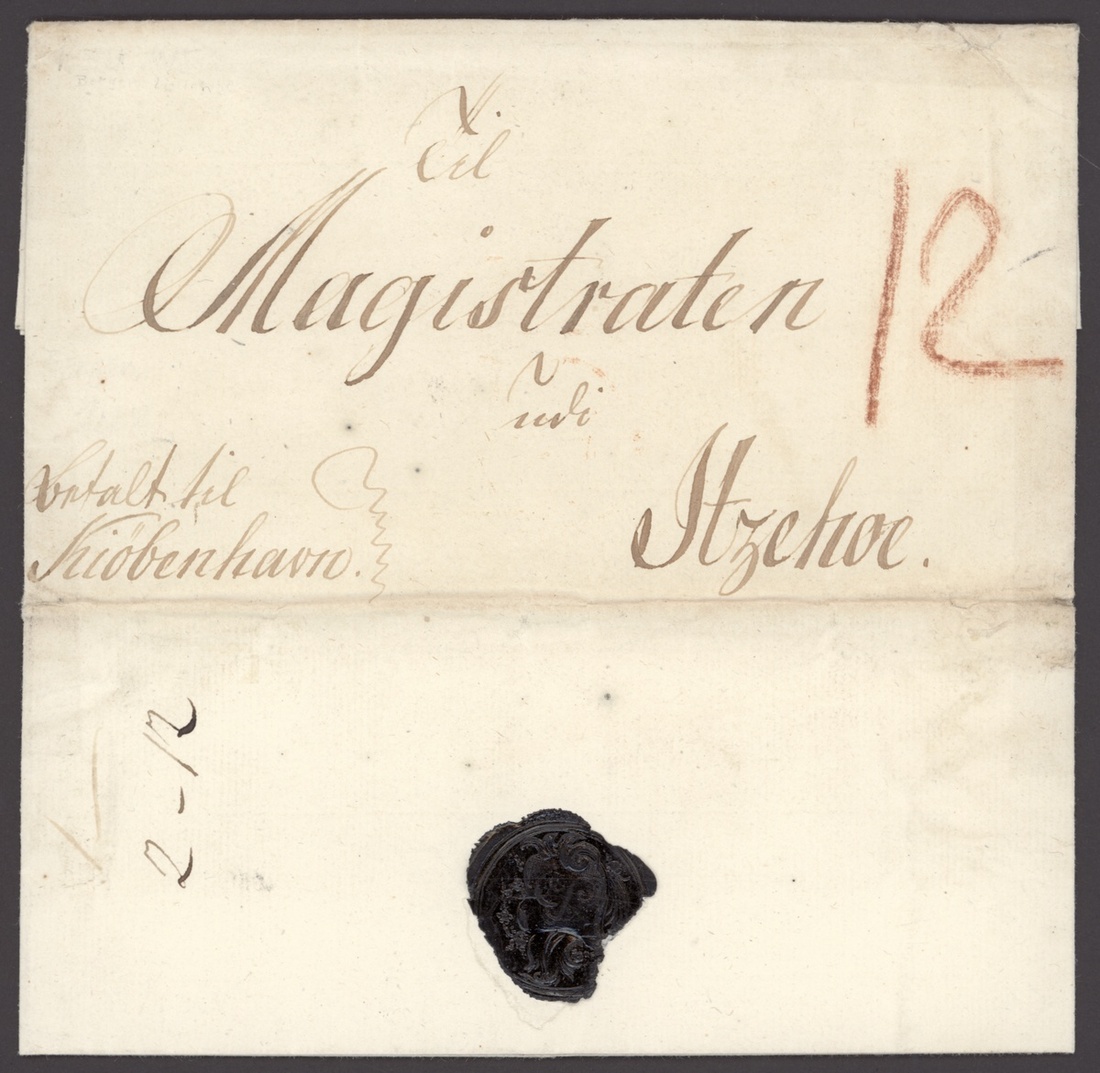 Til
Magistraten
12
udi
Itzehoe.
betalt til
Kiöbenhavn.
2-12